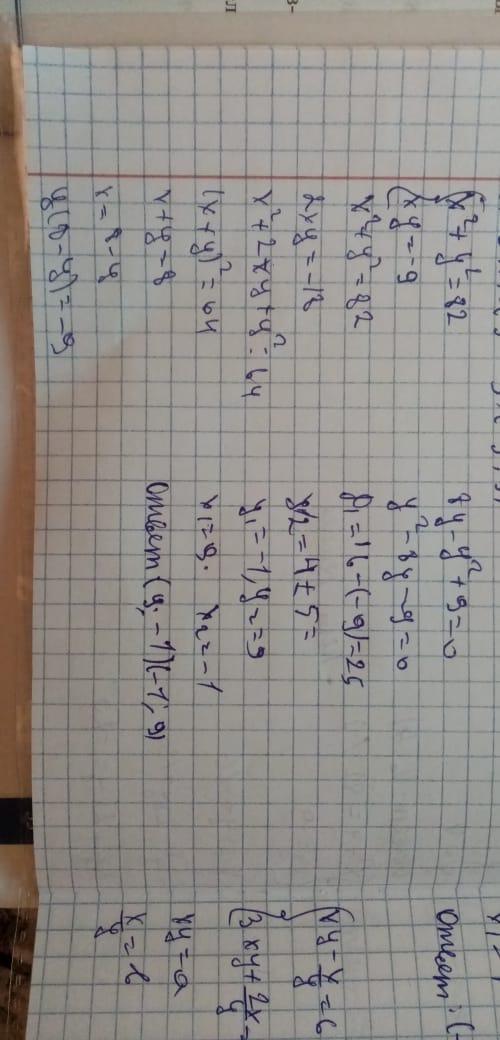 x² + y² = 82
xy = -9
x² + y² = 82
2xy = -18
x² + 2xy + y² = 64
(x + y)² = 64
x + y = 8
x = 8 - y
y(8 - y) = -9
8y - y² + 9 = 0
y² - 8y - 9 = 0
D₁ = 16 - (-9) = 25
y/2 = 4 ± 5 =
y₁ = -1, y₂ = 9
x₁ = 9. x₂ = -1
Ответ (9; -1)(-1; 9)
Ответ: (-
xy - x/y = 6
3xy + 2x/y =
xy = a
x/y = b